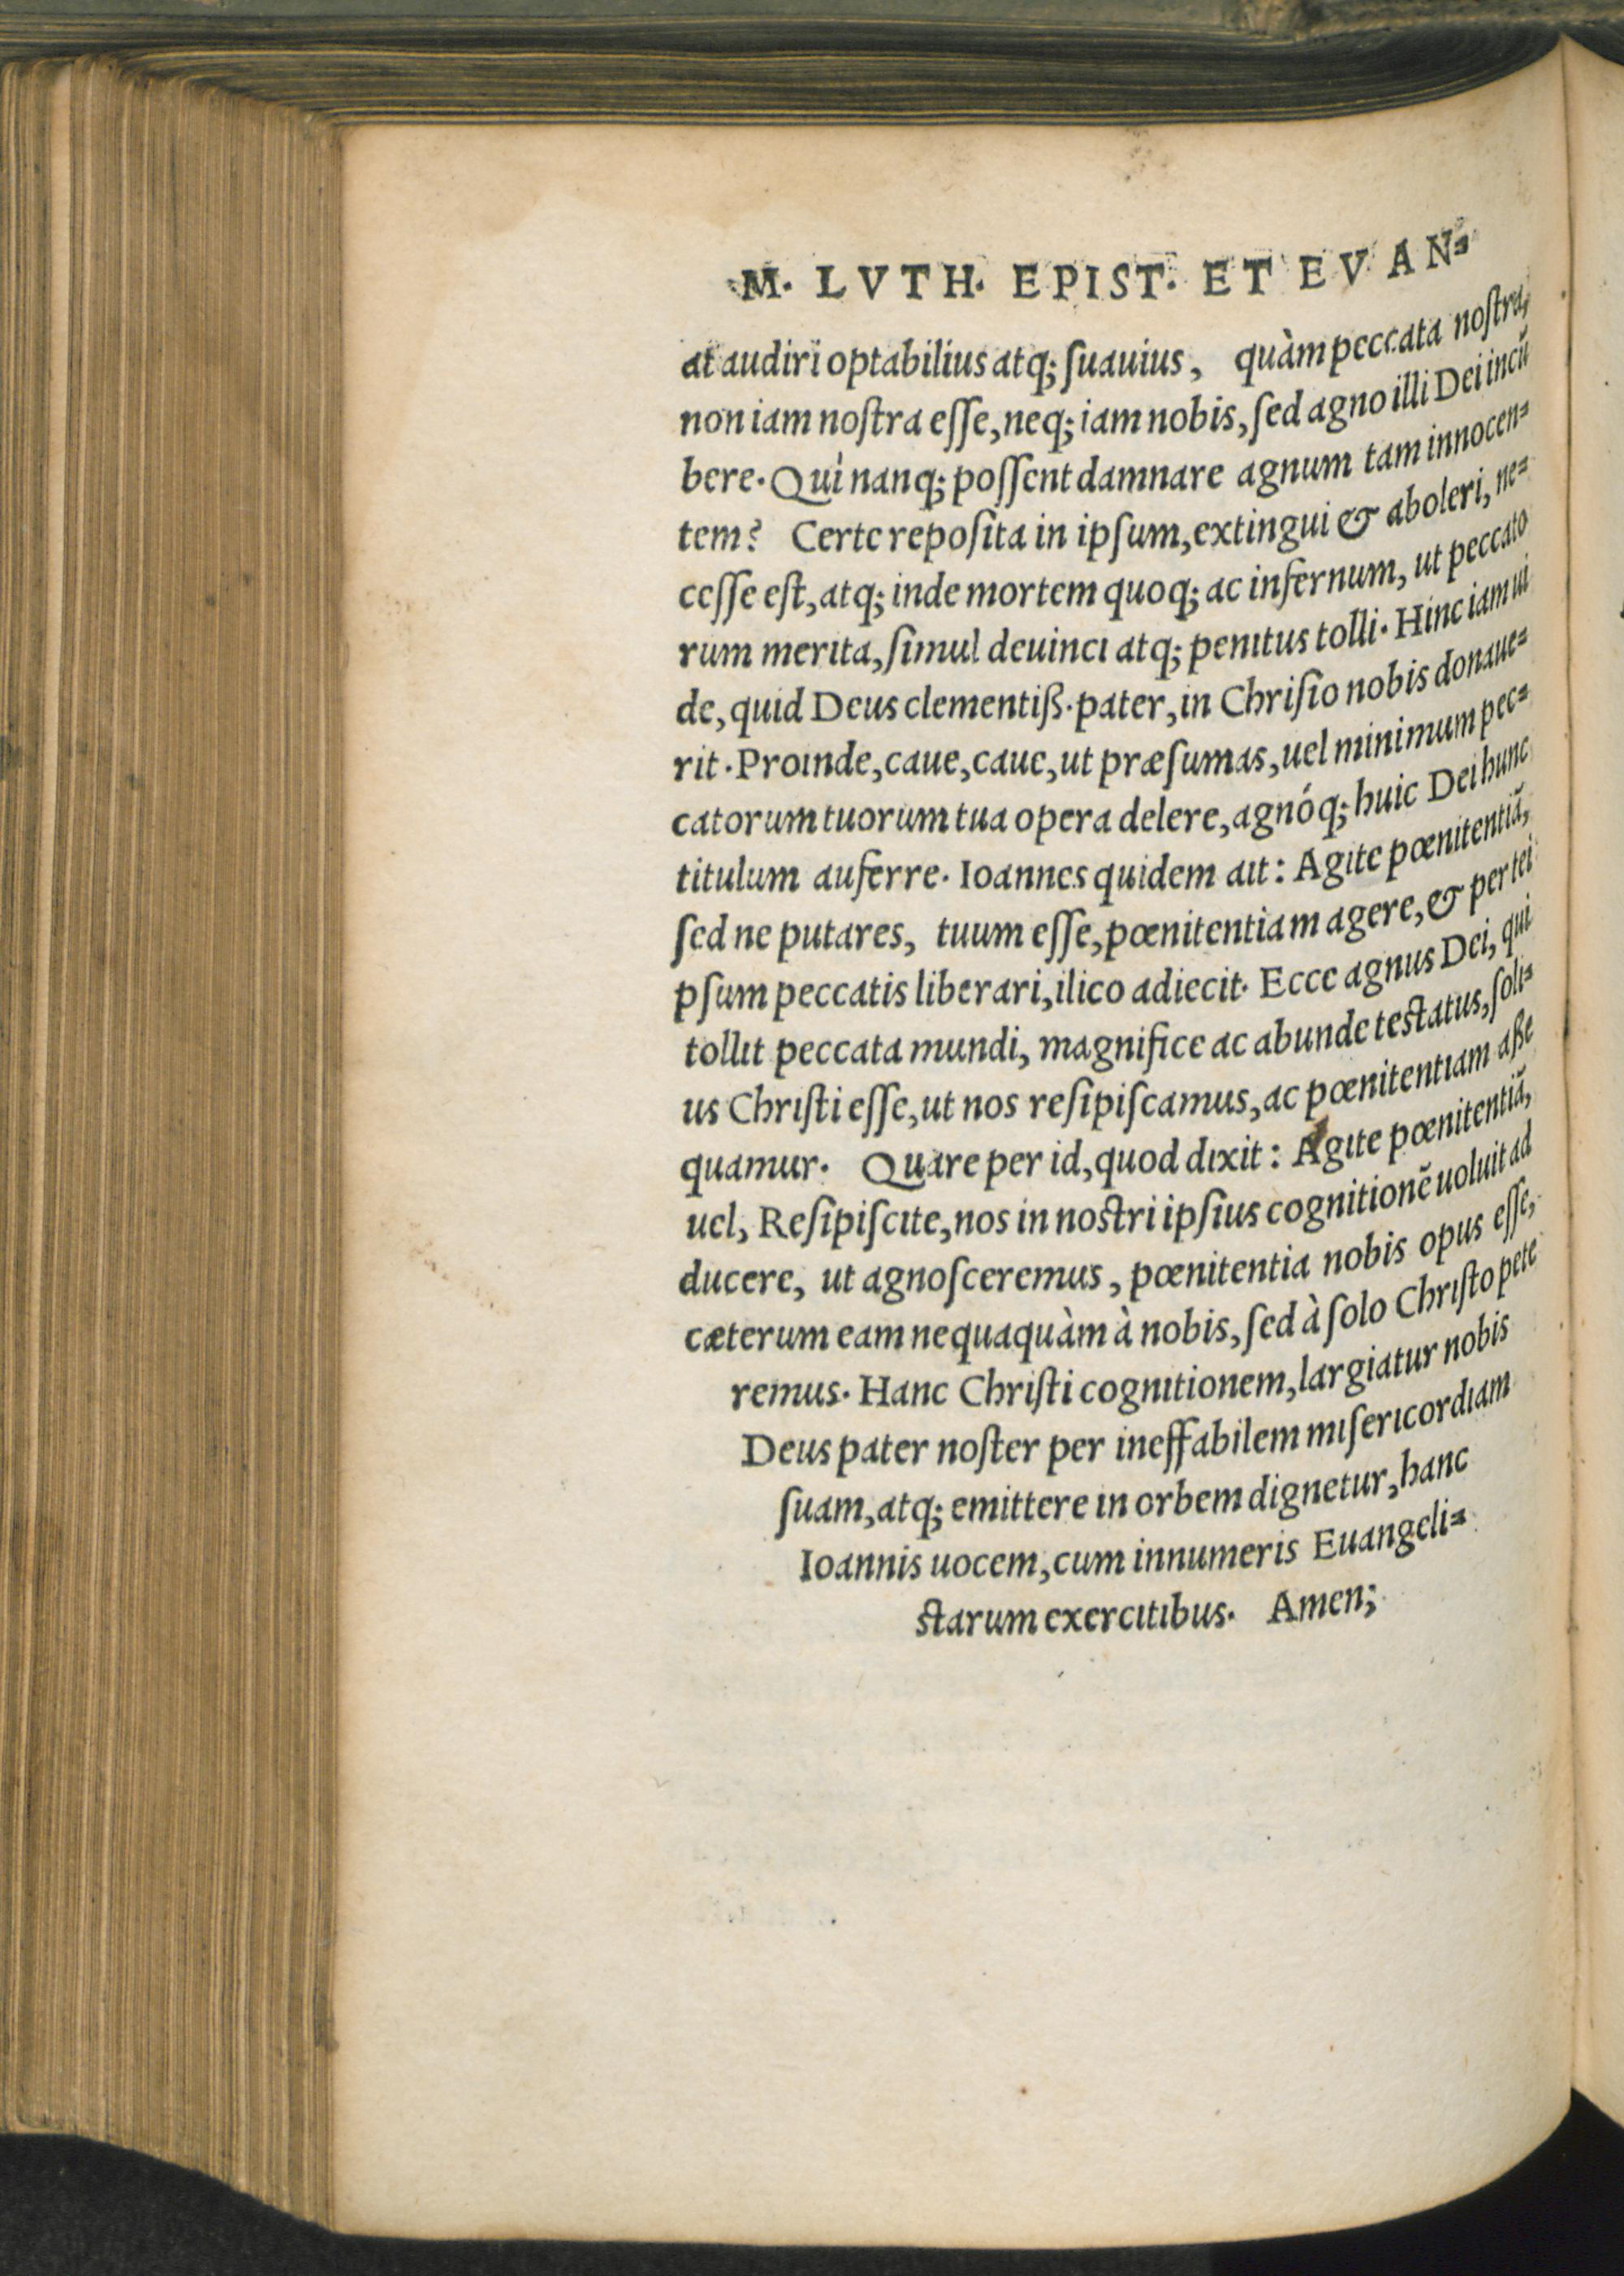 M. LVTH. EPIST. ET EVAN⸗
at audiri optabilius atq; ſuauius, quàm peccata noſtra,
non iam noſtra eſſe, neq; iam nobis, ſed agno illi Dei incū
bere. Quì nanq; poſſent damnare agnum tam innocen⸗
tem? Certe repoſita in ipſum, extingui & aboleri, ne⸗
ceſſe eſt, atq; inde mortem quoq; ac infernum, ut peccato
rum merita, ſimul deuinci atq; penitus tolli. Hinc iam ui
de, quid Deus clementiß. pater, in Chriſto nobis donaue⸗
rit. Proinde, caue, caue, ut præſumas, uel minimum pec⸗
catorum tuorum tua opera delere, agnóq; huic Dei hunc
titulum auferre. Ioannes quidem ait: Agite pœnitentiā,
ſed ne putares, tuum eſſe, pœnitentiam agere, & per tei
pſum peccatis liberari, ilico adiecit. Ecce agnus Dei, qui
tollit peccata mundi, magnifice ac abunde teſtatus, ſoli⸗
us Chriſti eſſe, ut nos reſipiſcamus, ac pœnitentiam aße
quamur. Quare per id, quod dixit: Agite pœnitentiā,
uel, Reſipiſcite, nos in noſtri ipſius cognitionē uoluit ad
ducere, ut agnoſceremus, pœnitentia nobis opus eſſe,
cæterum eam nequaquàm à nobis, ſed à ſolo Chriſto pete
remus. Hanc Chriſti cognitionem, largiatur nobis
Deus pater noſter per ineffabilem miſericordiam
ſuam, atq; emittere in orbem dignetur, hanc
Ioannis uocem, cum innumeris Euangeli⸗
ſtarum exercitibus. Amen;